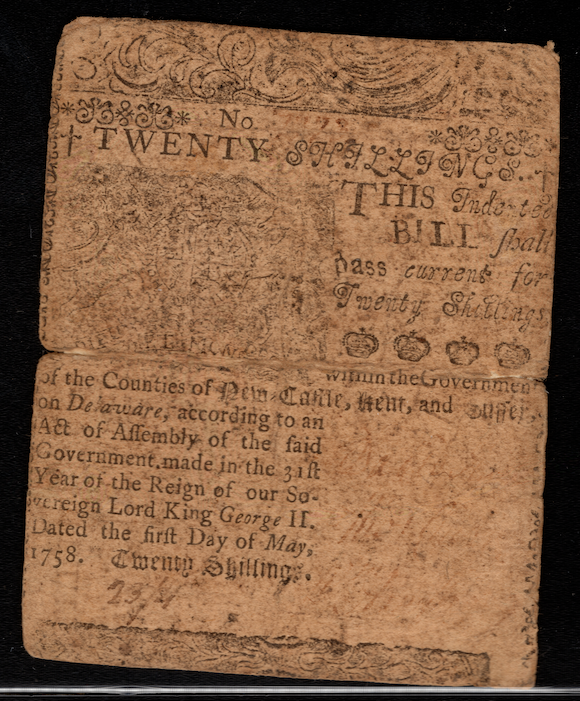 No
TWENTY SHILLINGS.
THIS Indented
BILL ſhall
paſs current for
Twenty Shillings
within the Government
of the Counties of New-Caſtle, Kent, and Suſſex,
on Delaware, according to an
Act of Aſſembly of the ſaid
Government, made in the 31ſt
Year of the Reign of our So-
vereign Lord King George II.
Dated the firſt Day of May,
1758. Twenty Shillings.